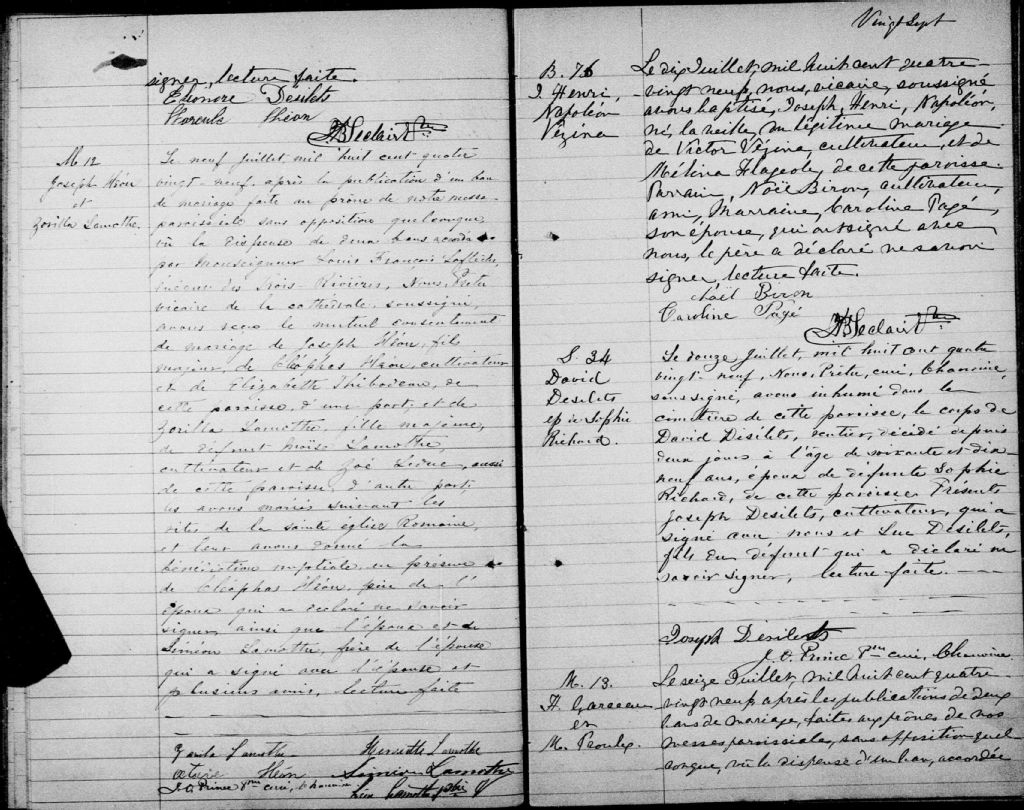 signer, lecture faite.
Eléonore Désilets
Hercule Héon
JB Leclair Ptre
M. 12
Joseph Héon
et
Zorilla Lamothe.
Le neuf Juillet mil huit cent quatre
vingt-neuf, après la publication d'un ban
de mariage faite au prône de notre messe
paroissiale sans opposition quelconque,
vu la dispense de deux bans accordée
par Monseigneur Louis François Laflèche,
évêque des Trois-Rivières, Nous, Prêtre
vicaire de la cathédrale, soussigné,
avons reçu le mutuel consentement
de mariage de Joseph Héon, fils
majeur, de Cléophas Héon, cultivateur
et de Elizabeth Thibodeau, de
cette paroisse, d'une part, et de
Zorilla Lamothe, fille majeure,
de défunt Moïse Lamothe,
cultivateur et de Zoé Leduc, aussi
de cette paroisse, d'autre part,
les avons mariés suivant les
rites de la sainte église Romaine,
et leur avons donné la
bénédiction nuptiale en présence
de Cléophas Héon, père de l'
époux qui a déclaré ne savoir
signer, ainsi que l'époux et de
Siméon Lamothe, frère de l'épouse
qui a signé avec l'épouse et
plusieurs amis, lecture faite
Zorilla Lamothe Henriette Lamothe
Héon Siméon Lamothe
J. O. Prince Ptre curé, Chanoine
Lamothe
Vingt sept
B. 76
J. Henri,
Napoléon
Vézina
Le dix Juillet, mil huit cent quatre-
vingt neuf, nous, vicaire, soussigné
avons baptisé, Joseph, Henri, Napoléon,
né, la veille, du légitime mariage
de Victor Vézina, cultivateur, et de
Mélina Flageole, de cette paroisse.
Parrain, Noël Biron, cultivateur,
ami, Marraine, Caroline Pagé,
son épouse, qui ont signé avec
nous, le père a déclaré ne savoir
signer, lecture faite.
Noël Biron
Caroline Pagé
JB Leclair Ptre
S. 34
David
Desilets
ep de Sophie
Richard.
Le douze Juillet, mil huit cent quatre
vingt-neuf, Nous, Prêtre, curé, Chanoine,
soussigné, avons inhumé dans le
cimetière de cette paroisse, le corps de
David Désilets, rentier, décédé depuis
deux jours à l'âge de soixante et dix-
neuf ans, époux de défunte Sophie
Richard, de cette paroisse. Présents
Joseph Desilets, cultivateur, qui a
signé avec nous et Luc Desilets,
fils du défunt qui a déclaré ne
savoir signer, lecture faite.
Joseph Désilets
J. O. Prince Ptre curé, Chanoine
M. 13.
H. Garceau
et
M.
Le seize Juillet, mil huit cent quatre
vingt neuf après les publications de deux
bans de mariage, faites aux prônes de nos
messes paroissiales, sans opposition quel
conque, vu la dispense d'un ban, accordée